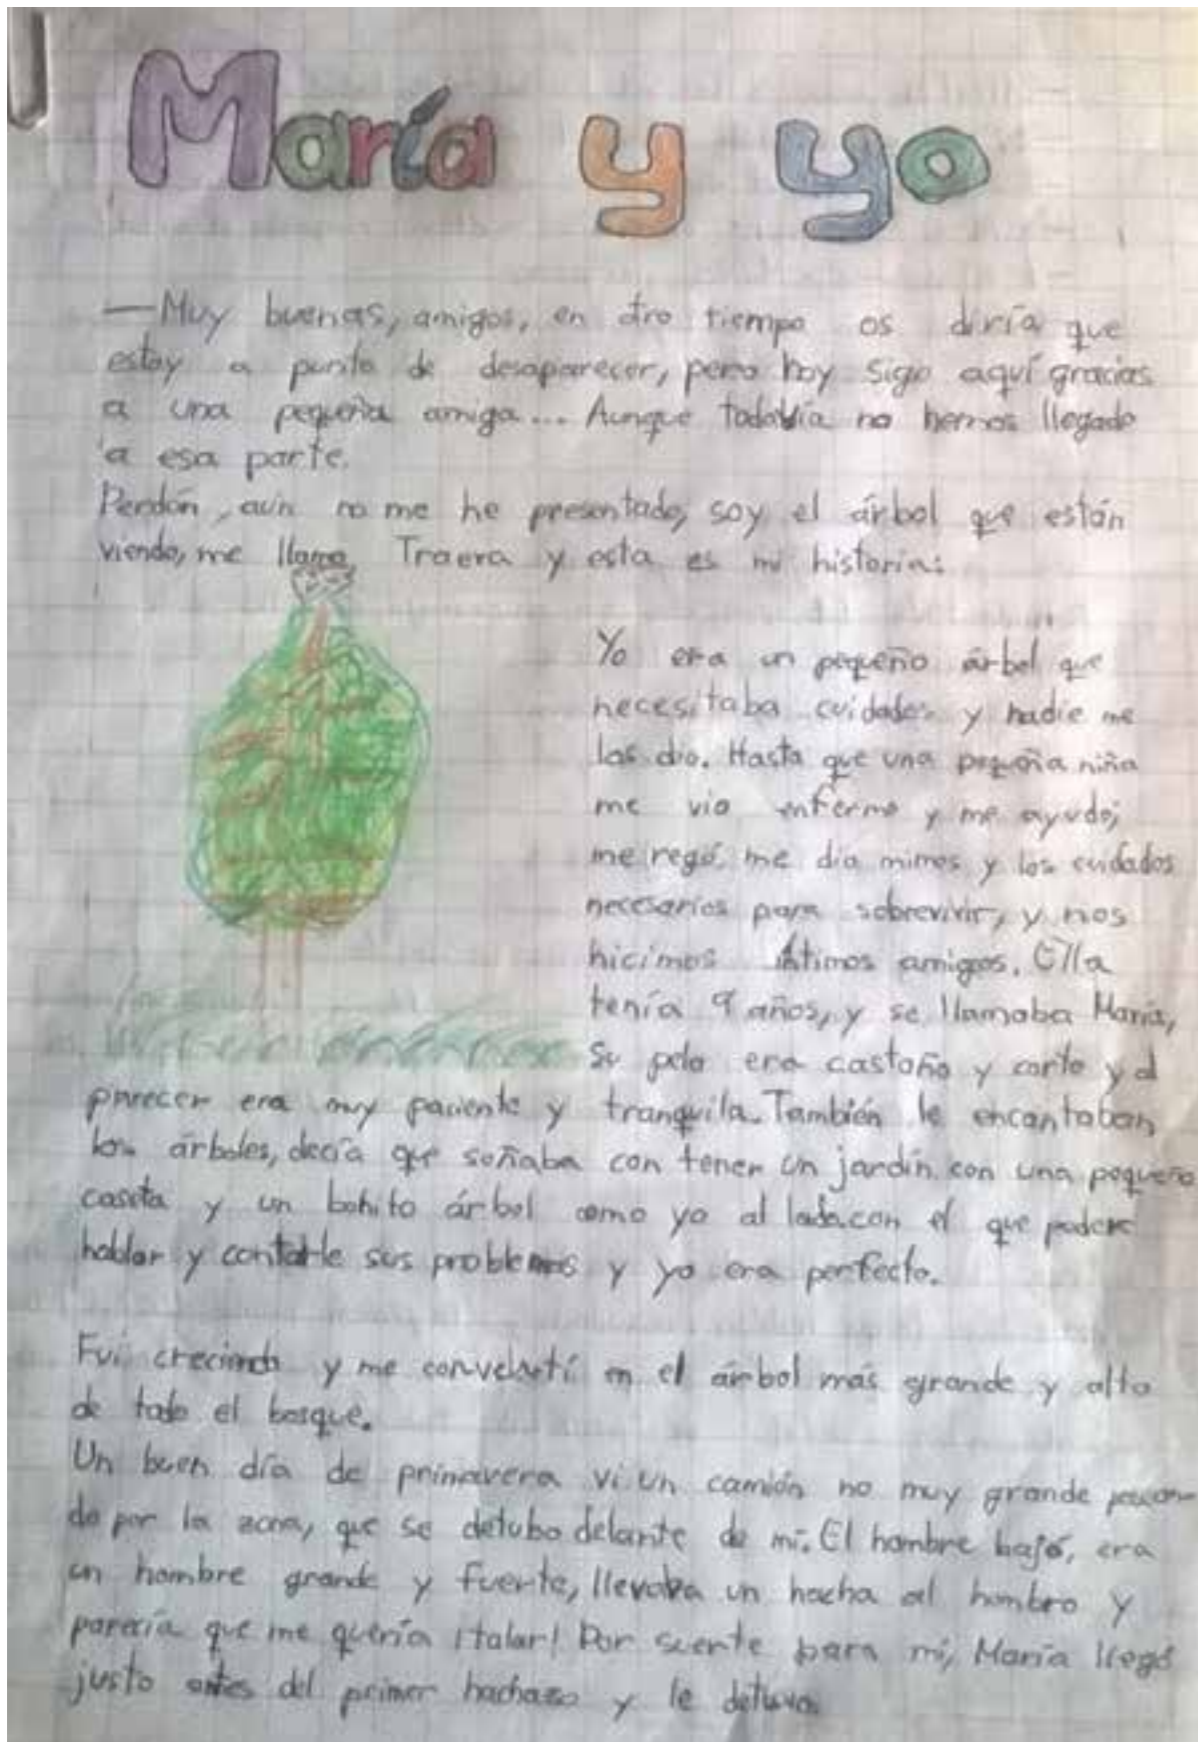 María y yo
—Muy buenas, amigos, en otro tiempo os diría que
estoy a punto de desaparecer, pero hoy sigo aquí gracias
a una pequeña amiga... Aunque todavía no hemos llegado
a esa parte.
Perdón, aún no me he presentado, soy el árbol que están
viendo, me llamo Traera y esta es mi historia:
Yo era un pequeño árbol que
necesitaba cuidados y nadie me
los dio. Hasta que una pequeña niña
me vio enfermo y me ayudó;
me regó, me dio mimos y los cuidados
necesarios para sobrevivir, y nos
hicimos íntimos amigos. Ella
tenía 9 años, y se llamaba María,
Su pelo era castaño y corto y al
parecer era muy paciente y tranquila. También le encantaban
los árboles, decía que soñaba con tener un jardín con una pequeña
casita y un bonito árbol como yo al lado con el que poder
hablar y contarle sus problemas y yo era perfecto.
Fui creciendo y me convertí en el árbol más grande y alto
de todo el bosque.
Un buen día de primavera vi un camión no muy grande pasan-
do por la zona, que se detubo delante de mi. El hombre bajó, era
un hombre grande y fuerte, llevaba un hacha al hombro y
parecía que me quería ¡talar! Por suerte para mí, María llegó
justo antes del primer hachazo y le detuvo.